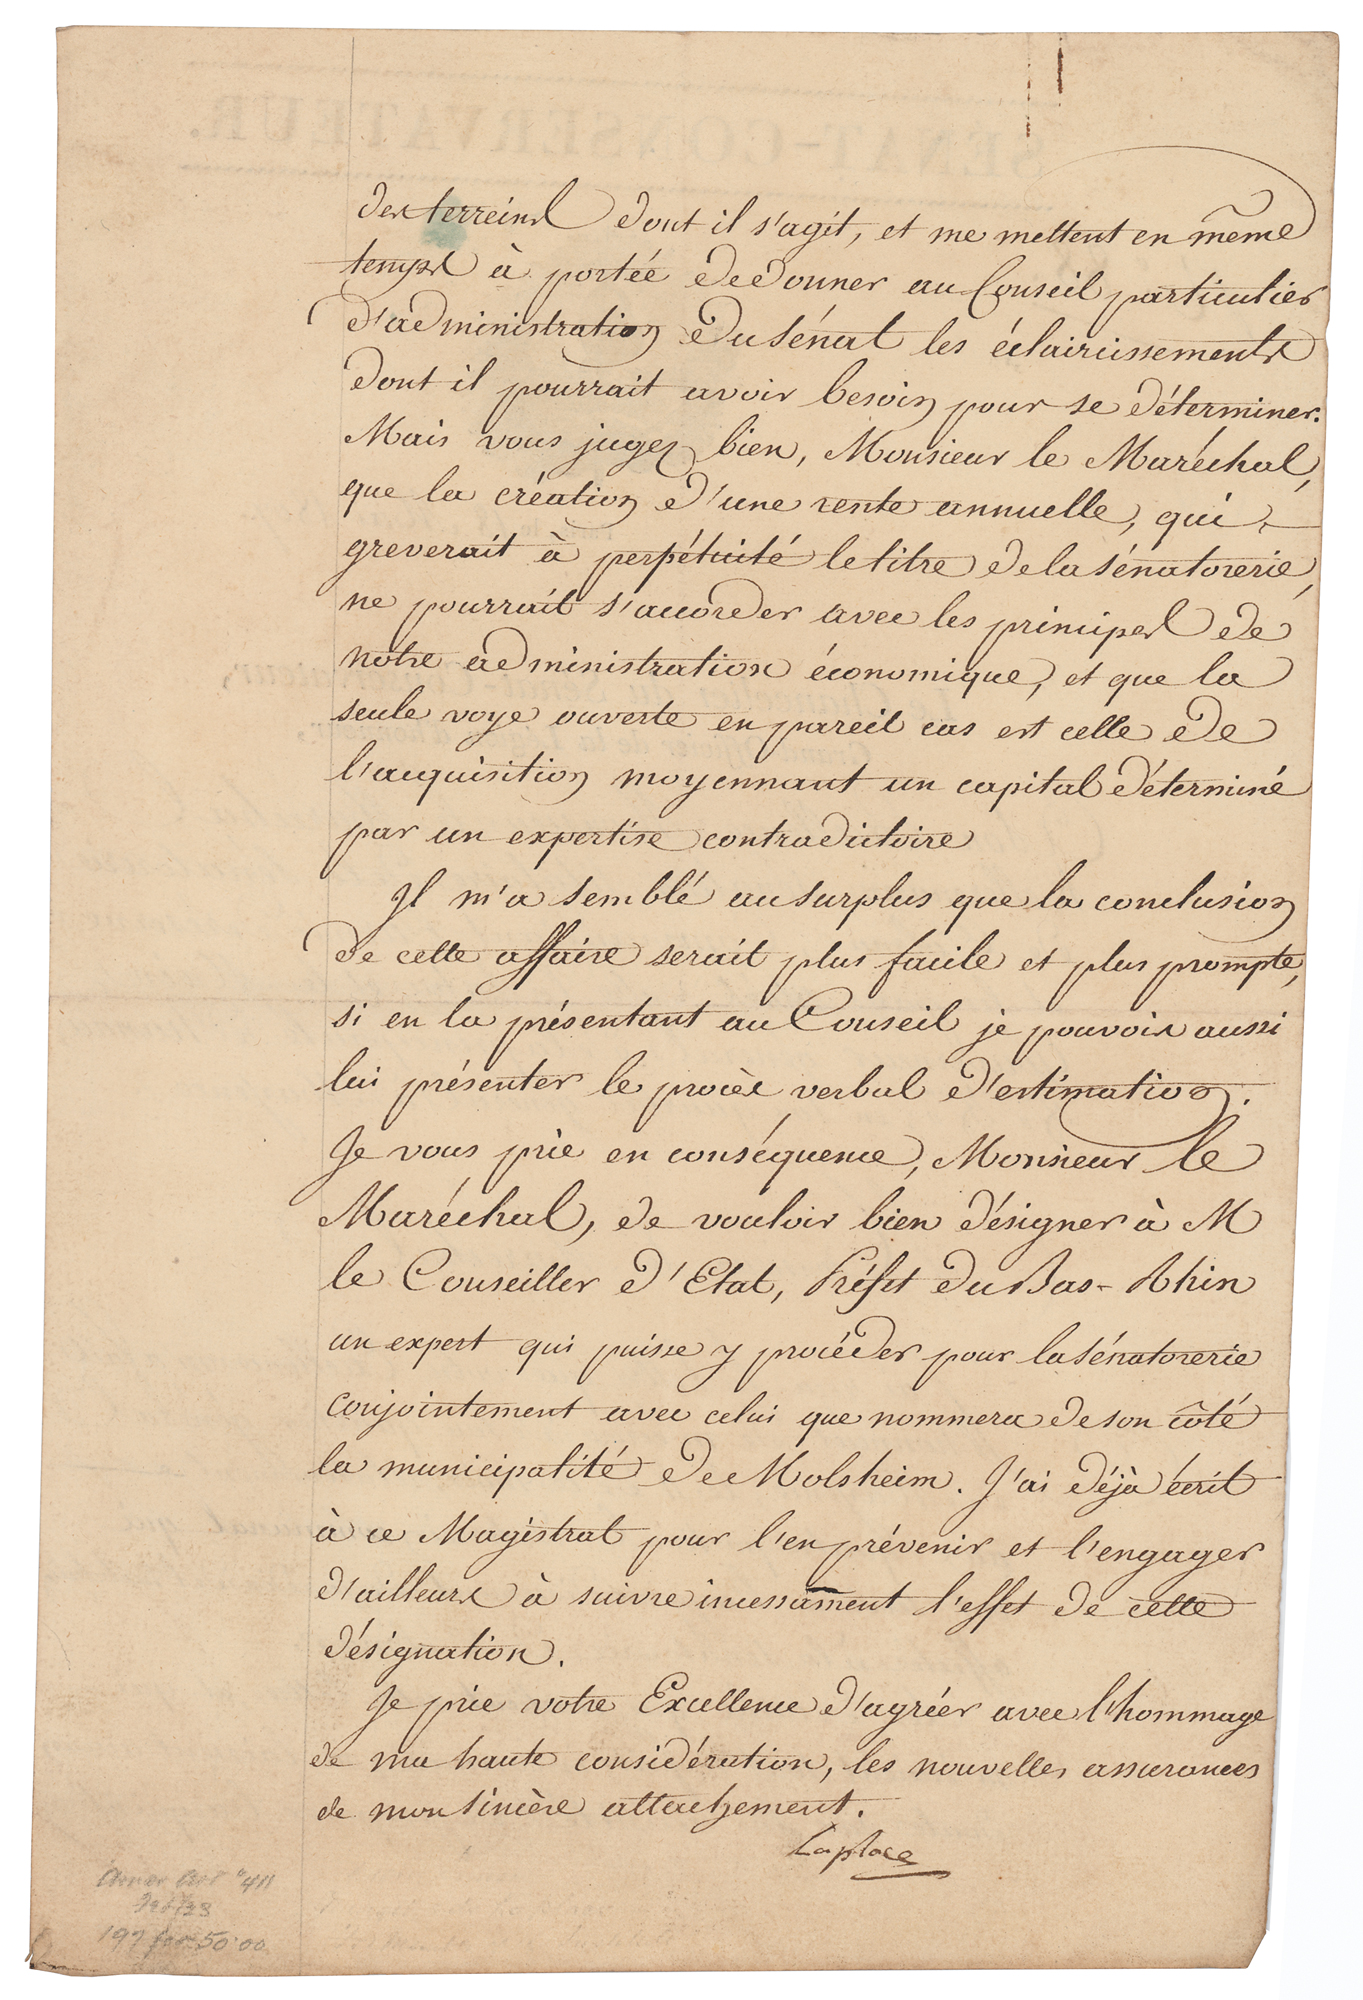 des terreins dont il s'agit, et me mettent en même
temps à portée de donner au Conseil particulier
d'administration du Sénat les éclaircissements
dont il pourrait avoir besoin pour se déterminer.
Mais vous jugez bien, Monsieur le Maréchal,
que la création d'une rente annuelle, qui
greverait à perpétuité le titre de la Sénatorerie,
ne pourrait s'accorder avec les principes de
notre administration économique, et que la
seule voye ouverte en pareil cas est celle de
l'acquisition moyennant un capital déterminé
par un expertise contradictoire
Il m'a semblé au surplus que la conclusion
de cette affaire serait plus facile et plus prompte,
si en la présentant au Conseil je pouvois aussi
lui présenter le procès verbal d'estimation.
Je vous prie en conséquence, Monsieur le
Maréchal, de vouloir bien désigner à M
le Conseiller d'Etat, Préfet du Bas-Rhin
un expert qui puisse y procéder pour la Sénatorerie
conjointement avec celui que nommera de son côté
la municipalité de Molsheim. J'ai déjà écrit
à ce Magistrat pour l'en prévenir et l'engager
d'ailleurs à suivre incessament l'effet de cette
désignation.
Je prie votre Excellence d'agréer avec l'hommage
de ma haute considération, les nouvelles assurances
de mon sincère attachement.
Laplace
411
197 for 50.00
SENAT-CONSERVATEUR.